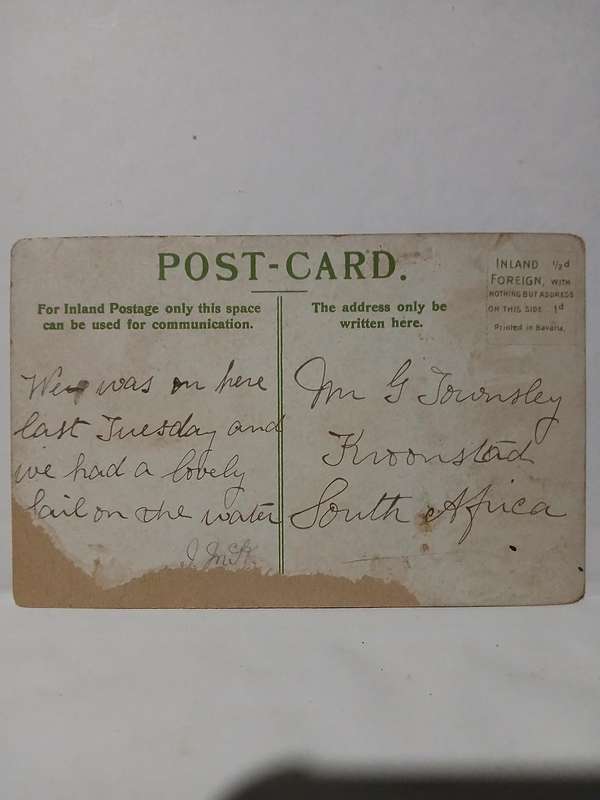 POST-CARD.
For Inland Postage only this space
can be used for communication.
The address only be
written here.
INLAND ½d
FOREIGN, WITH
NOTHING BUT ADDRESS
ON THIS SIDE 1d
Printed in Bavaria.
We was on here
last Tuesday and
we had a lovely
sail on the water
Mr G Townsley
Kroonstad
South Africa